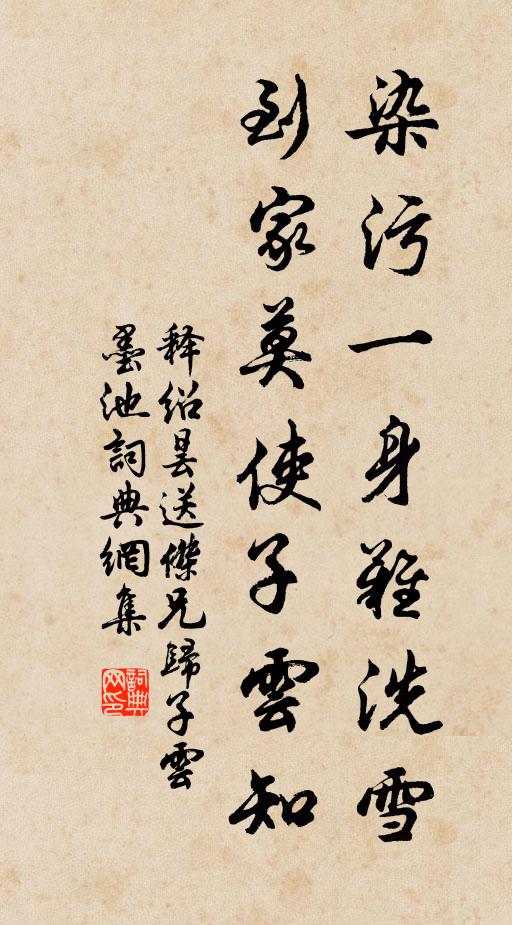 染污一身難洗雪
到家莫使子雲知
释绍昙送傑兄歸子雲
墨池詞典網集
詞典网印